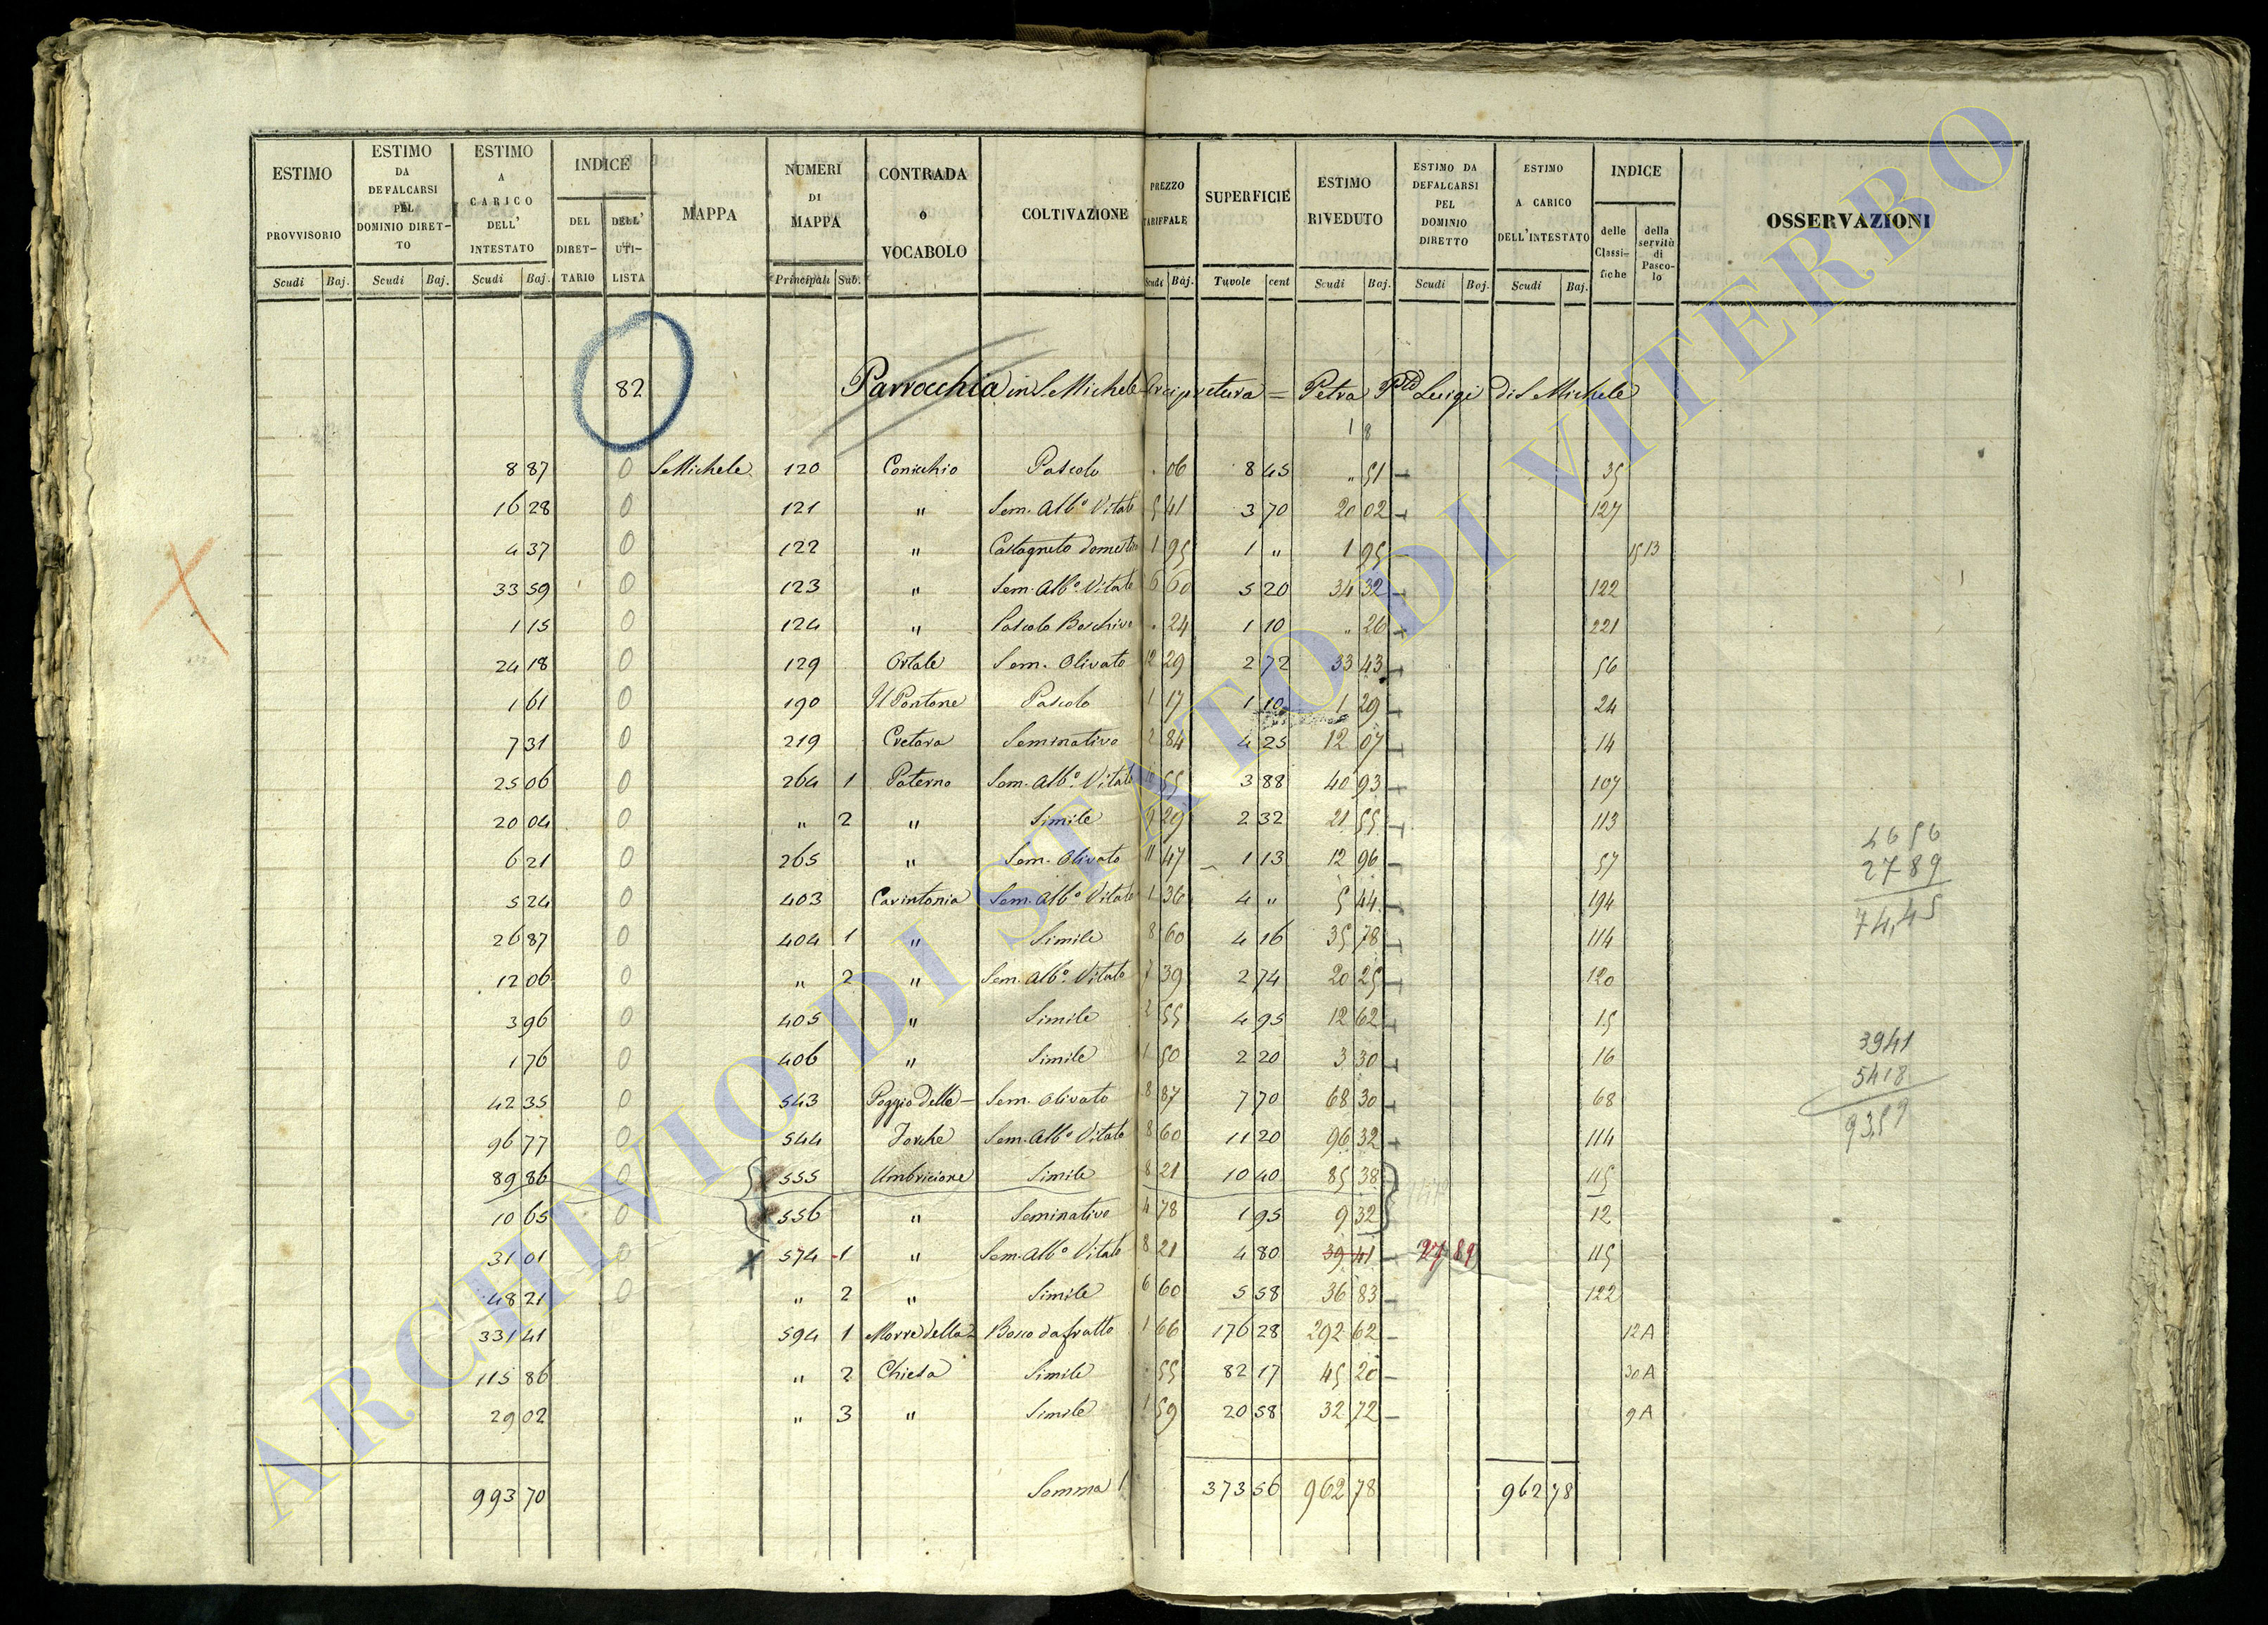 ESTIMO PROVVISORIO Scudi Baj.
ESTIMO DA DEFALCARSI PEL DOMINIO DIRET-TO Scudi Baj.
ESTIMO A CARICO DELL' INTESTATO Scudi Baj.
INDICE DEL DIRET-TARIO DELL' UTI-LISTA
MAPPA
NUMERI DI MAPPA Principali Sub.
CONTRADA o VOCABOLO
COLTIVAZIONE
PREZZO TARIFFALE Scudi Baj.
SUPERFICIE Tavole cent
ESTIMO RIVEDUTO Scudi Baj.
ESTIMO DA DEFALCARSI PEL DOMINIO DIRETTO Scudi Baj.
ESTIMO A CARICO DELL'INTESTATO Scudi Baj.
INDICE delle Classi-fiche della servitù di Pasco-lo
OSSERVAZIONI
82 Parrocchia in S. Michele Arcipretura = Petra Luigi di S Michele
1 8
8 87 0 S. Michele 120 Conicchio Pascolo . 06 8 45 " 51 35
16 28 0 121 " Sem. Alb.o Vitato 5 41 3 70 20 02 127
4 37 0 122 " Castagneto domestico 1 95 1 " 1 95 1513
33 59 0 123 " Sem. Alb.o Vitato 6 60 5 20 34 32 122
1 15 0 124 " Pascolo Boschivo . 24 1 10 " 26 221
24 18 0 129 Ortale Sem. Olivato 12 29 2 72 33 43 56
1 61 0 190 Il Pontone Pascolo 1 17 1 10 1 29 24
7 31 0 219 Cretara Seminativo 2 84 4 25 12 07 14
25 06 0 264 1 Paterno Sem. Alb.o Vitato 10 55 3 88 40 93 107
20 04 0 " 2 " Simile 9 29 2 32 21 55 113
6 21 0 265 " Sem. Olivato 11 47 1 13 12 96 57
5 24 0 403 Carintonia Sem. Alb.o Vitato 1 36 4 " 5 44 194
26 87 0 404 1 " Simile 8 60 4 16 35 78 114
12 06 0 " 2 " Sem. Alb.o Vitato 7 39 2 74 20 25 120
3 96 0 405 " Simile 2 55 4 95 12 62 15
1 76 0 406 " Simile 1 50 2 20 3 30 16
42 35 0 543 Poggio delle Sem. Olivato 8 87 7 70 68 30 68
96 77 0 544 Forche Sem. Alb.o Vitato 8 60 11 20 96 32 114
89 86 0 555 Umbricione Simile 8 21 10 40 85 38 115
10 65 0 556 " Seminativo 4 78 1 95 9 32 12
31 01 0 574 1 " Sem. Alb.o Vitato 8 21 4 80 39 41 27 89 115
48 21 0 " 2 " Simile 6 60 5 58 36 83 122
331 41 594 1 Morre della Bosco da frutto 1 66 176 28 292 62 12A
115 86 " 2 Chiesa Simile . 55 82 17 45 20 30A
29 02 " 3 " Simile 1 59 20 58 32 72 9A
993 70 Somma 373 56 962 78 962 78
4656
2789
74,45
3941
5418
93,59
ARCHIVIO DI STATO DI VITERBO